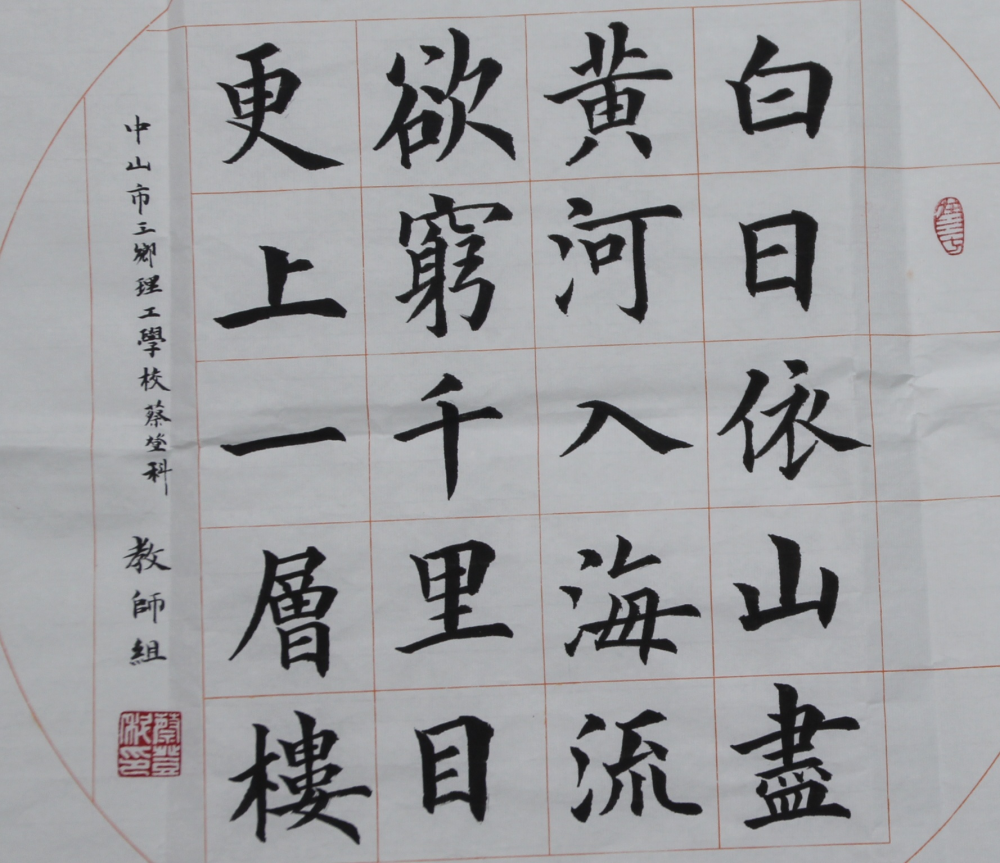 白日依山盡
黃河入海流
欲窮千里目
更上一層樓
中山市三鄉理工學校蔡登科 教師組
蔡登科印